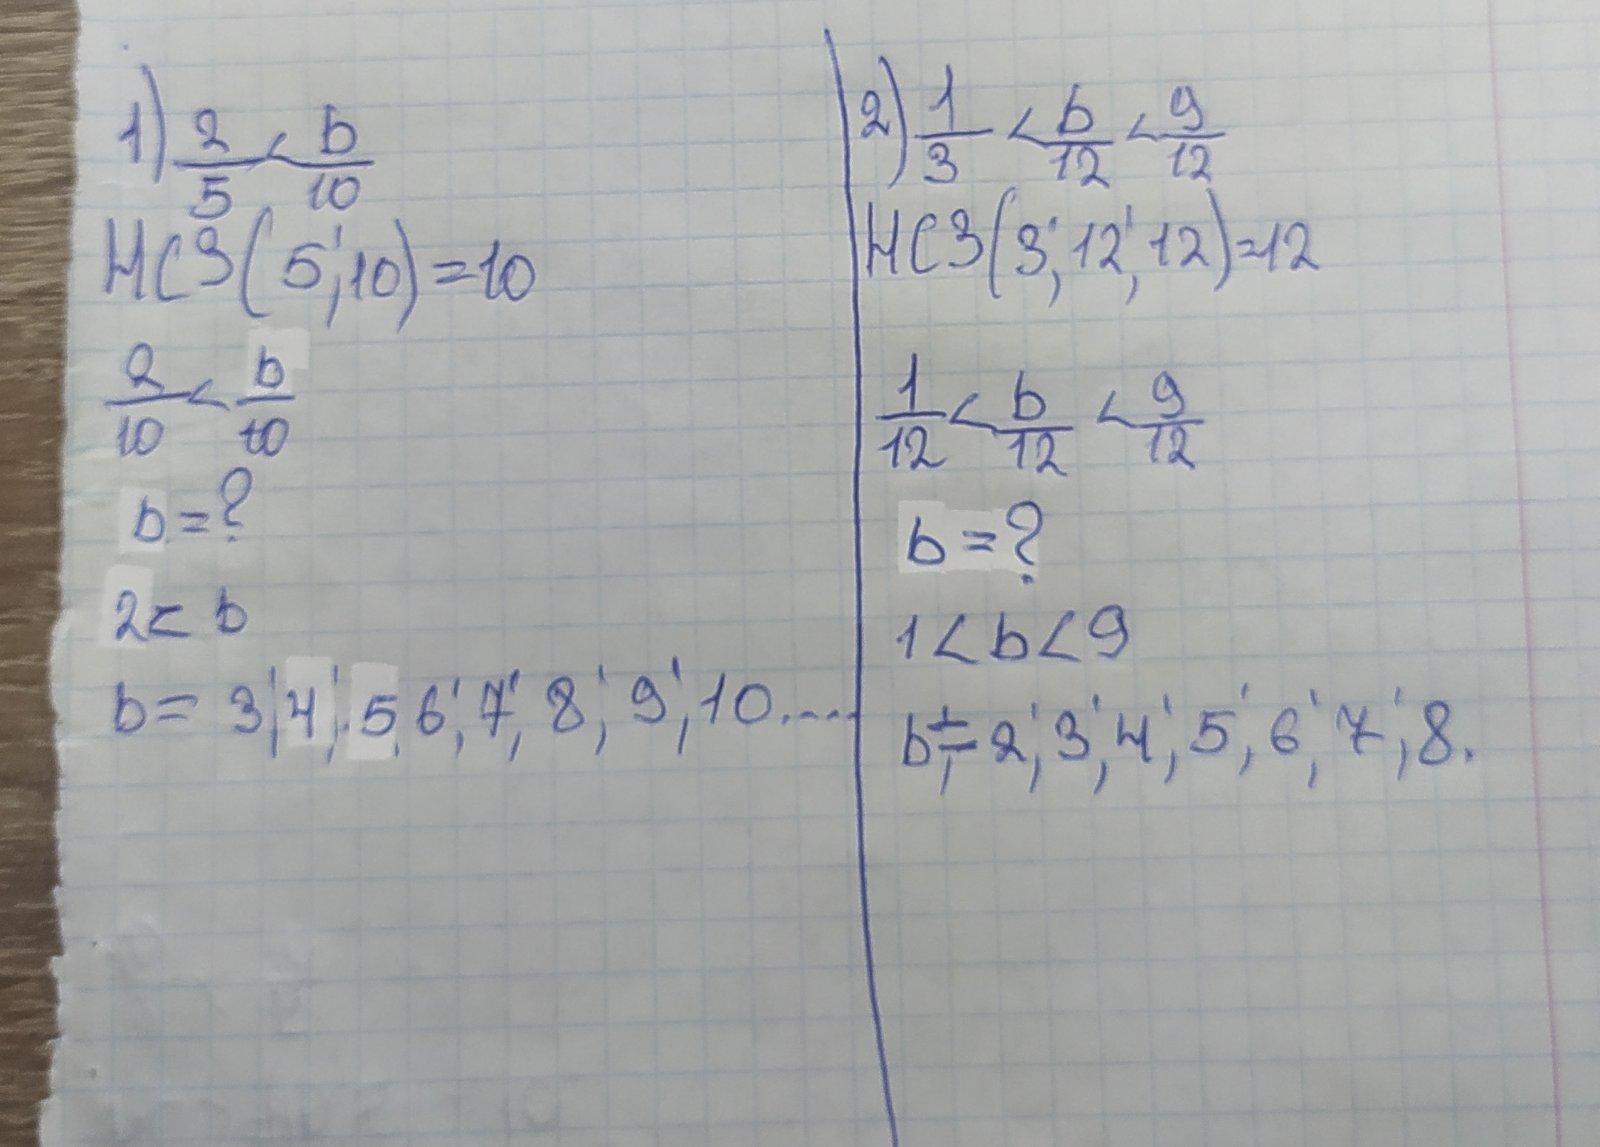 1) 2/5 < b/10
НСЗ(5; 10) = 10
2/10 < b/10
b = ?
2 < b
b = 3; 4; 5, 6; 7; 8; 9; 10....
2) 1/3 < b/12 < 9/12
НСЗ(3; 12; 12) = 12
1/12 < b/12 < 9/12
b = ?
1 < b < 9
b = 2; 3; 4; 5; 6; 7; 8.